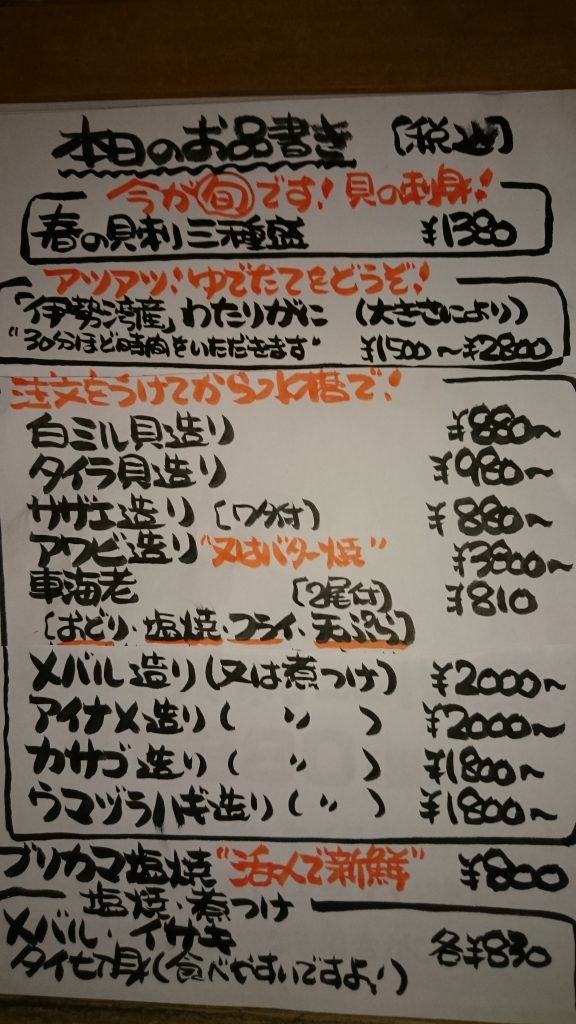 本日のお品書き [税込]
今が旬です! 貝の刺身!
春の貝刺し三種盛 ¥1380
アツアツ!ゆでたてをどうぞ!
「伊勢湾産」わたりがに (大きさにより)
"30分ほど時間をいただきます" ¥1500~¥2800
注文をうけてから水槽で!
白ミル貝造り ¥880~
タイラ貝造り ¥980~
サザエ造り [ワタ付] ¥880~
アワビ造り "又はバター焼" ¥3800~
車海老 [2尾付] ¥810
[おどり・塩焼・フライ・天ぷら]
メバル造り(又は煮つけ) ¥2000~
アイナメ造り( 〃 ) ¥2000~
カサゴ造り( 〃 ) ¥1800~
ウマヅラハギ造り( 〃 ) ¥1800~
ブリカマ塩焼 "活〆で新鮮" ¥800
塩焼・煮つけ
メバル・イサキ 各¥830
タイ切身(食べやすいですよ)